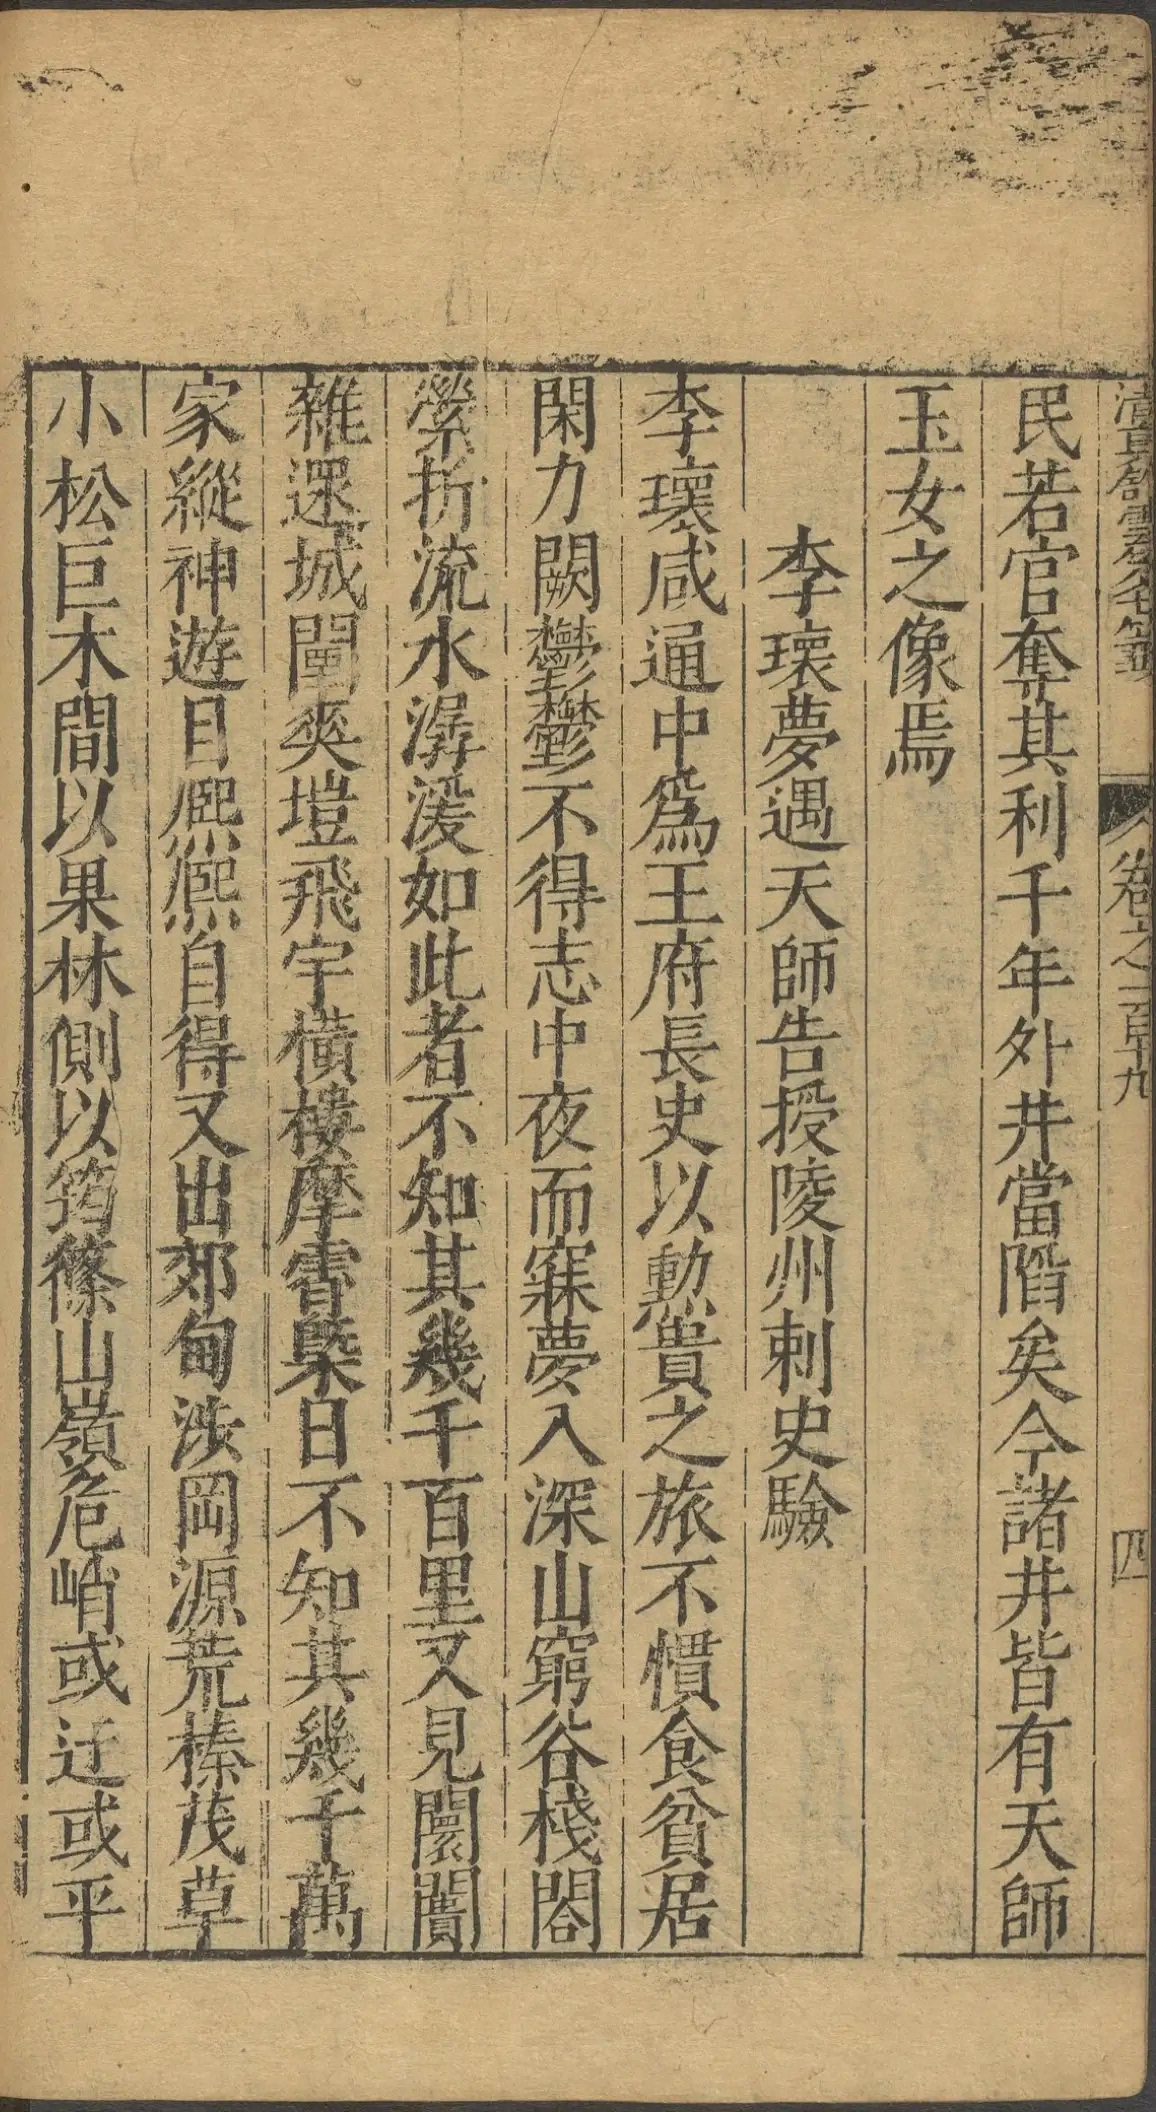 清真館雲笈七籤　卷之一百十九　四
民若官奪其利千年外井當陷矣今諸井皆有天師
玉女之像焉
李瓌夢遇天師告授陵州刺史驗
李瓌咸通中爲王府長史以勳貴之旅不慣食貧居
閑力闕鬱鬱不得志中夜而寐夢入深山窮谷棧閣
縈折流水潺湲如此者不知其幾千百里又見闤闠
雜遝城闉爽塏飛宇橫樓摩霄槩日不知其幾千萬
家縱神遊目熈熈自得又出郊甸涉岡源荒榛茂草
小松巨木間以果林側以筠篠山嶺危峭或迂或平